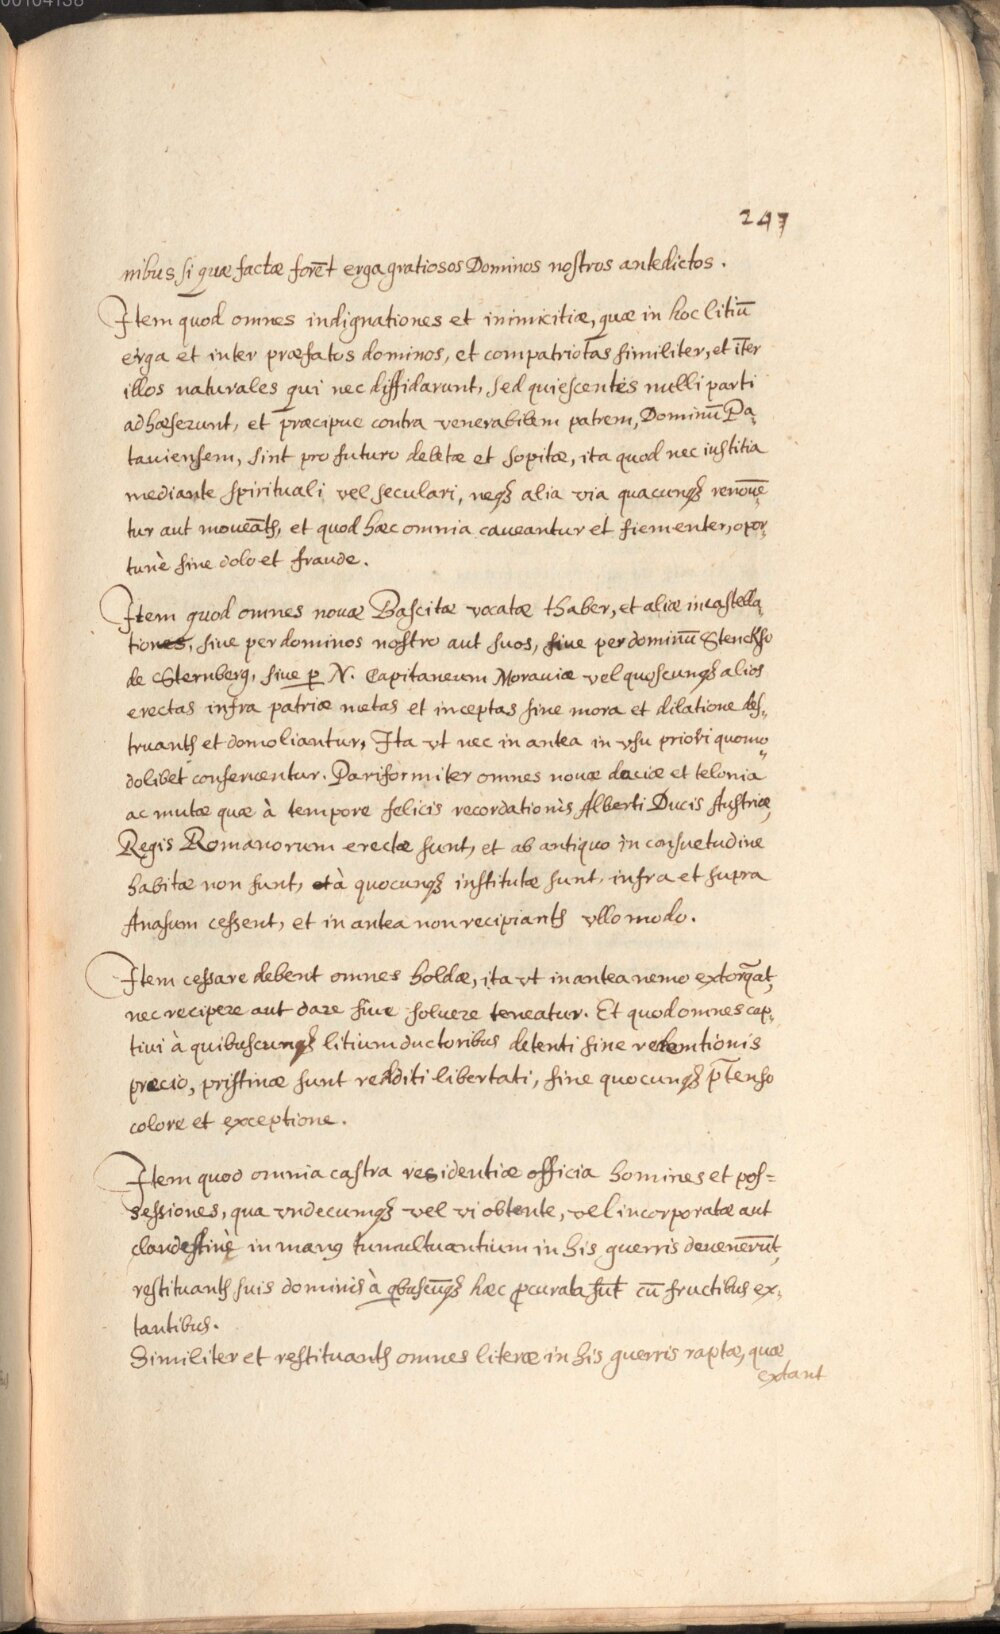 00104138
247
nibus si quæ factæ forēt erga gratiosos Dominos nostros antedictos.
Item quod omnes indignationes et inimicitiæ, quæ in hoc litiū
erga et inter præfatos dominos, et compatriotas similiter, et īter
illos naturales qui nec diffidarunt, sed quiescentes nulli parti
adhæserunt, et præcipue contra venerabilem patrem, Dominū Pa„
tauiensem, sint pro futuro deletæ et sopitæ, ita quod nec iustitia
mediante spirituali vel seculari, neqꝫ alia via quacunqꝫ renouē„
tur aut moueātꝭ, et quod hæc omnia caveantur et firmenter, opor„
tunè sine dolo et fraude.
Item quod omnes nouæ Bascitæ vocatæ thaber, et aliæ incastella„
tiones, siue per dominos nostro aut suos, siue per dominū Stenckso
de Sternberg, siue ꝑ N. Capitaneum Morauiæ vel quoscunqꝫ alios
erectas infra patriæ metas et inceptas sine mora et dilatione des„
truantꝭ et domoliantur, Ita vt nec in antea in vsu priori quomo„
dolibet conseruentur. Pariformiter omnes nouæ daciæ et telonia
ac mutæ quæ à tempore felicis recordationis Alberti Ducis Austriæ,
Regis Romanorum erectæ sunt, et ab antiquo in consuetudine
habitæ non sunt, et à quocunqꝫ institutæ sunt, infra et supra
Anasum cessent, et in antea non recipiantꝭ vllo modo.
Item cessare debent omnes holdæ, ita vt in antea nemo extorq̄at,
nec recipere aut dare siue soluere teneatur. Et quod omnes cap„
tiui à quibuscunqꝫ litium ductoribus detenti sine redemtionis
precio, pristinæ sunt redditi libertati, sine quocunqꝫ p̄tenso
colore et exceptione.
Item quod omnia castra residentiæ officia homines et pos=
sessiones, qua vndecumqꝫ vel vi obtente, vel incorporatæ aut
clandestinè in manꝰ tumultuantium in his guerris deuenerūt,
restituantꝭ suis dominis à qbuscūqꝫ hæc ꝓcurata sūt cū fructibus ex„
tantibus.
Similiter et restituantꝭ omnes literæ in his guerris raptæ, quæ
extant